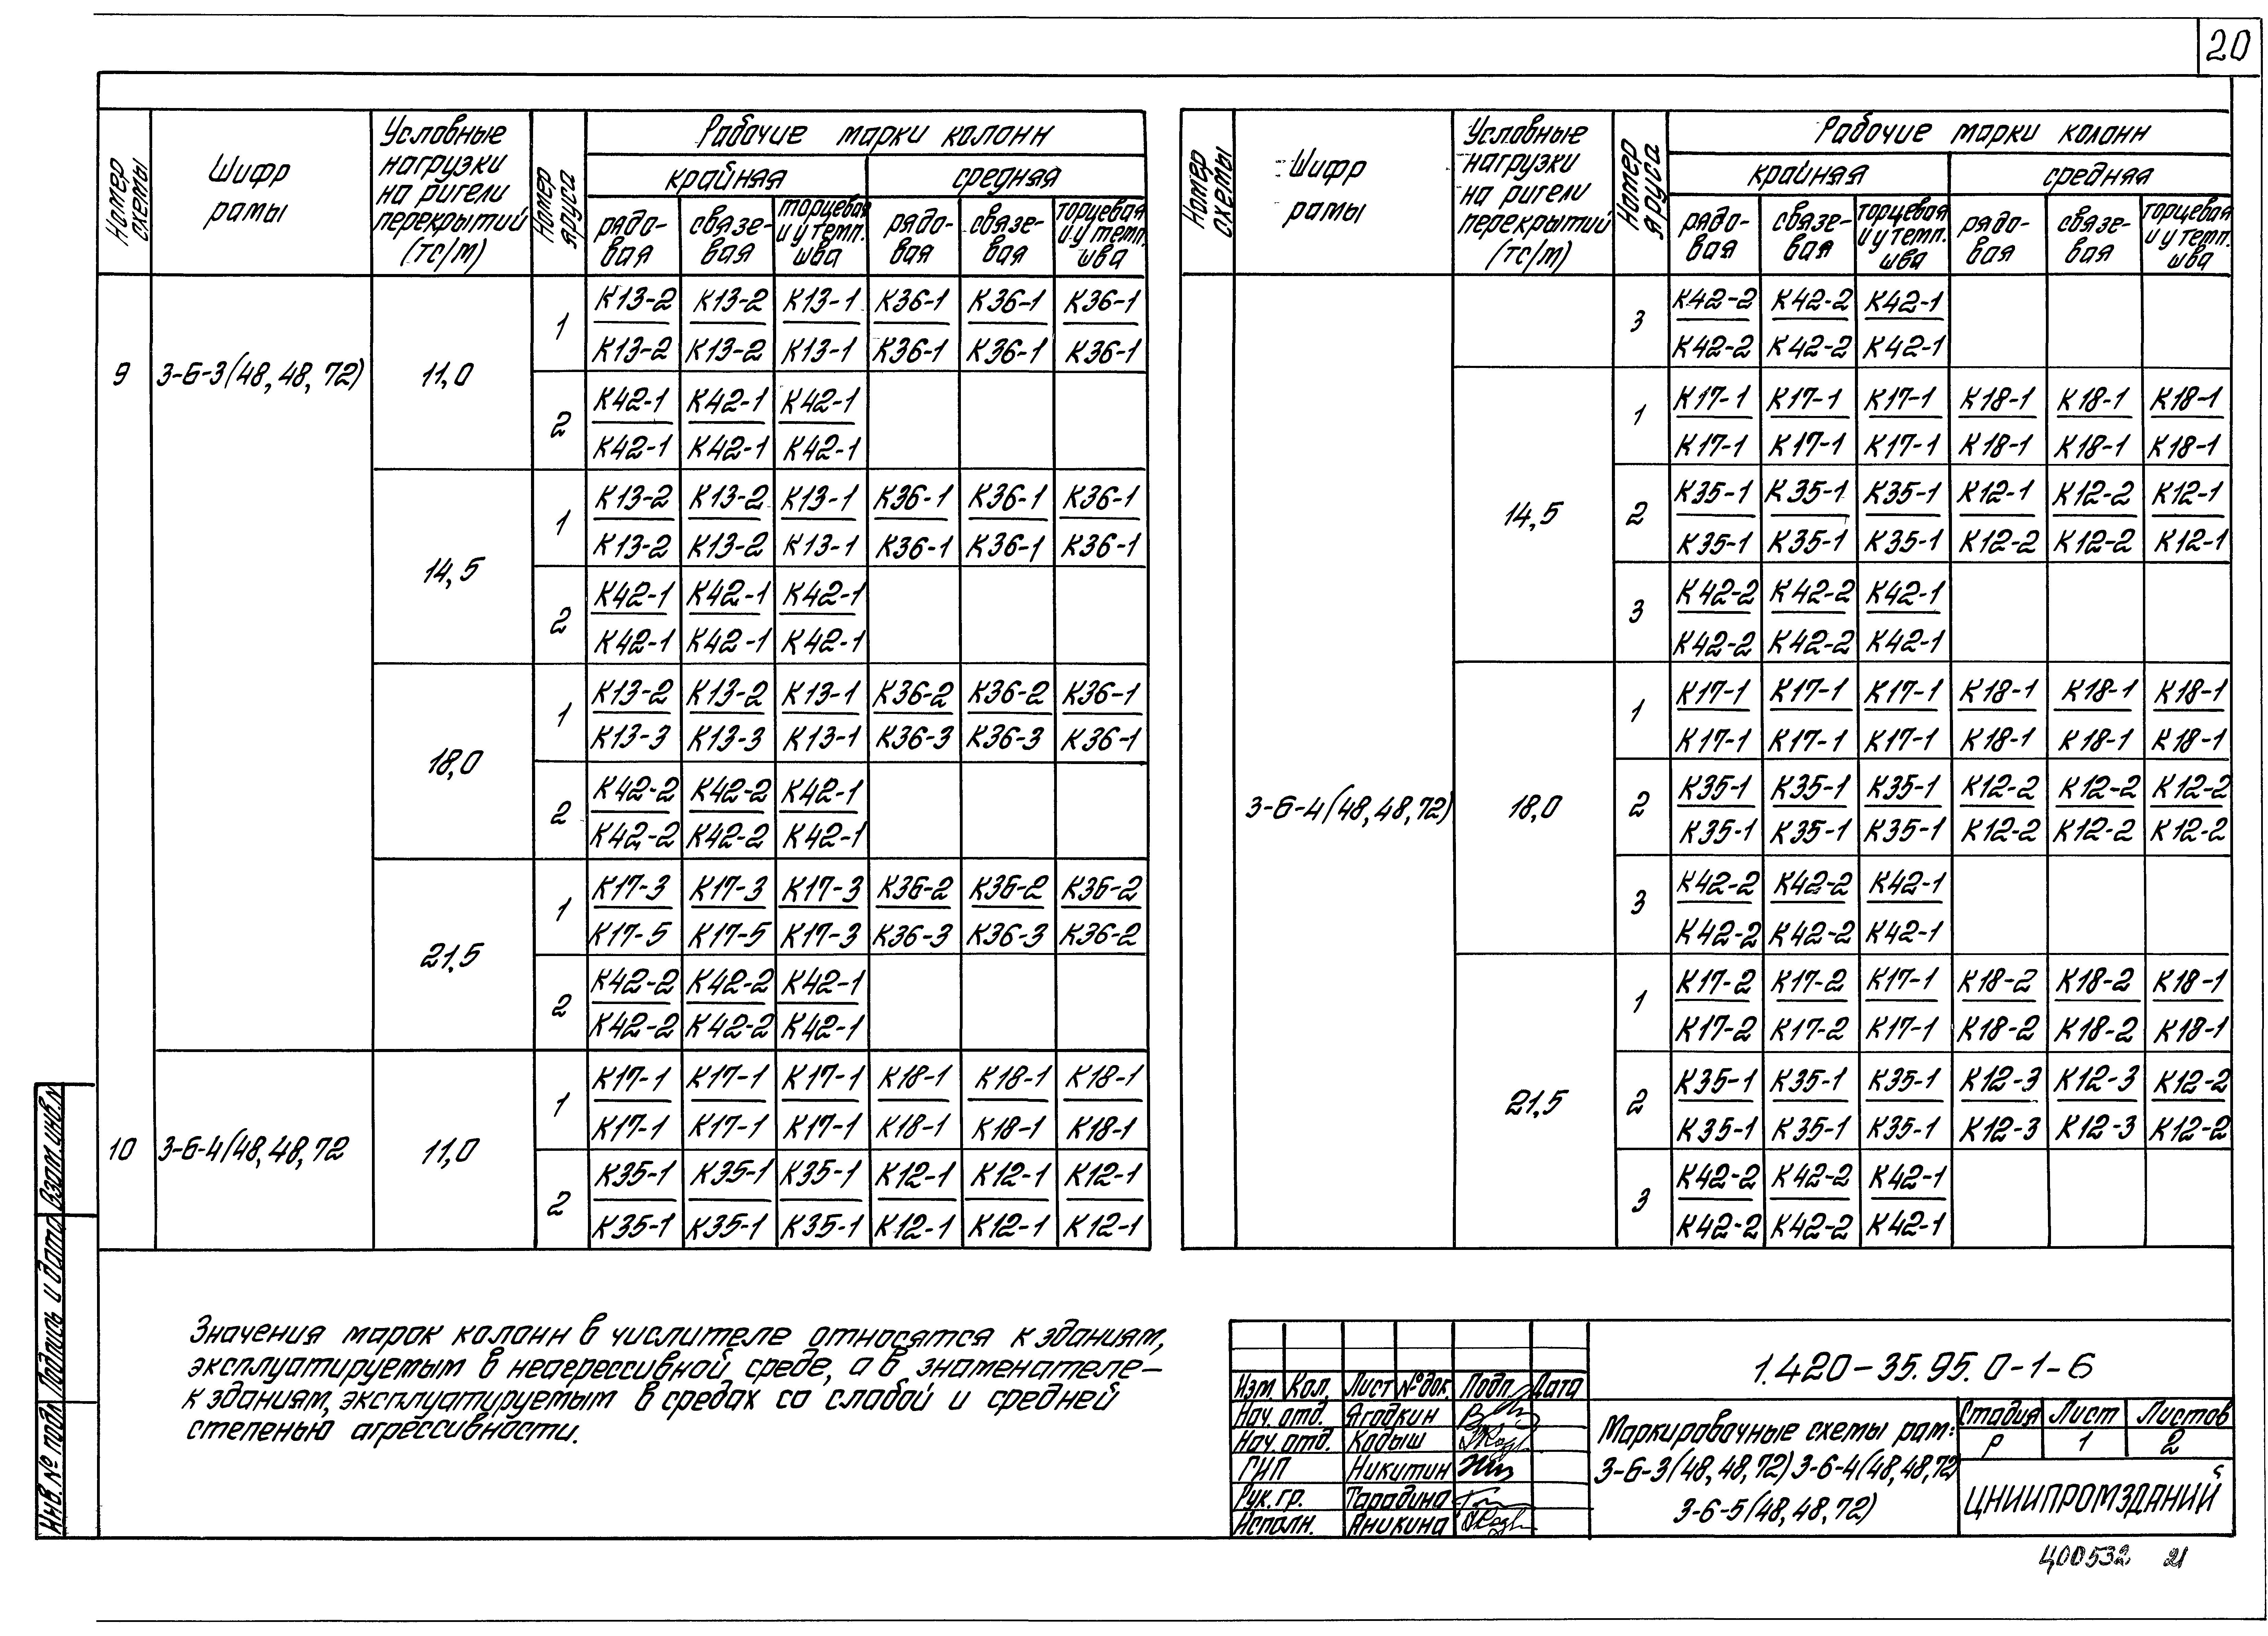 20
Номер схемы | Шифр рамы | Условные нагрузки на ригели перекрытий (тс/м) | Номер яруса | Рабочие марки колонн
крайняя | средняя
рядовая | связевая | торцевая и у темп. шва | рядовая | связевая | торцевая и у темп. шва
9 | 3-6-3(48, 48, 72) | 11,0 | 1 | К13-2 | К13-2 | К13-1 | К36-1 | К36-1 | К36-1
К13-2 | К13-2 | К13-1 | К36-1 | К36-1 | К36-1
2 | К42-1 | К42-1 | К42-1
К42-1 | К42-1 | К42-1
14,5 | 1 | К13-2 | К13-2 | К13-1 | К36-1 | К36-1 | К36-1
К13-2 | К13-2 | К13-1 | К36-1 | К36-1 | К36-1
2 | К42-1 | К42-1 | К42-1
К42-1 | К42-1 | К42-1
18,0 | 1 | К13-2 | К13-2 | К13-1 | К36-2 | К36-2 | К36-1
К13-3 | К13-3 | К13-1 | К36-3 | К36-3 | К36-1
2 | К42-2 | К42-2 | К42-1
К42-2 | К42-2 | К42-1
21,5 | 1 | К17-3 | К17-3 | К17-3 | К36-2 | К36-2 | К36-2
К17-5 | К17-5 | К17-3 | К36-3 | К36-3 | К36-2
2 | К42-2 | К42-2 | К42-1
К42-2 | К42-2 | К42-1
10 | 3-6-4(48, 48, 72 | 11,0 | 1 | К17-1 | К17-1 | К17-1 | К18-1 | К18-1 | К18-1
К17-1 | К17-1 | К17-1 | К18-1 | К18-1 | К18-1
2 | К35-1 | К35-1 | К35-1 | К12-1 | К12-1 | К12-1
К35-1 | К35-1 | К35-1 | К12-1 | К12-1 | К12-1
Номер схемы | Шифр рамы | Условные нагрузки на ригели перекрытий (тс/м) | Номер яруса | Рабочие марки колонн
крайняя | средняя
рядовая | связевая | торцевая и у темп. шва | рядовая | связевая | торцевая и у темп. шва
3 | К42-2 | К42-2 | К42-1
К42-2 | К42-2 | К42-1
14,5 | 1 | К17-1 | К17-1 | К17-1 | К18-1 | К18-1 | К18-1
К17-1 | К17-1 | К17-1 | К18-1 | К18-1 | К18-1
2 | К35-1 | К35-1 | К35-1 | К12-1 | К12-2 | К12-1
К35-1 | К35-1 | К35-1 | К12-2 | К12-2 | К12-1
3 | К42-2 | К42-2 | К42-1
К42-2 | К42-2 | К42-1
3-6-4(48, 48, 72) | 18,0 | 1 | К17-1 | К17-1 | К17-1 | К18-1 | К18-1 | К18-1
К17-1 | К17-1 | К17-1 | К18-1 | К18-1 | К18-1
2 | К35-1 | К35-1 | К35-1 | К12-2 | К12-2 | К12-2
К35-1 | К35-1 | К35-1 | К12-2 | К12-2 | К12-2
3 | К42-2 | К42-2 | К42-1
К42-2 | К42-2 | К42-1
21,5 | 1 | К17-2 | К17-2 | К17-1 | К18-2 | К18-2 | К18-1
К17-2 | К17-2 | К17-1 | К18-2 | К18-2 | К18-1
2 | К35-1 | К35-1 | К35-1 | К12-3 | К12-3 | К12-2
К35-1 | К35-1 | К35-1 | К12-3 | К12-3 | К12-2
3 | К42-2 | К42-2 | К42-1
К42-2 | К42-2 | К42-1
Значения марок колонн в числителе относятся к зданиям,
эксплуатируемым в неагрессивной среде, а в знаменателе –
к зданиям, эксплуатируемым в средах со слабой и средней
степенью агрессивности.
Инв. № подл. Подпись и дата Взам. инв. №
Изм. Кол. Лист № док. Подп. Дата
Нач. отд. Ягодкин
Нач. отд. Кодыш
ГИП Никитин
Рук. гр. Тарадина
Исполн. Яникина
1.420-35.95.0-1-6
Маркировочные схемы рам:
3-6-3(48, 48, 72) 3-6-4(48, 48, 72)
3-6-5(48, 48, 72)
Стадия Лист Листов
Р 1 2
ЦНИИПРОМЗДАНИЙ
Ц00532 21